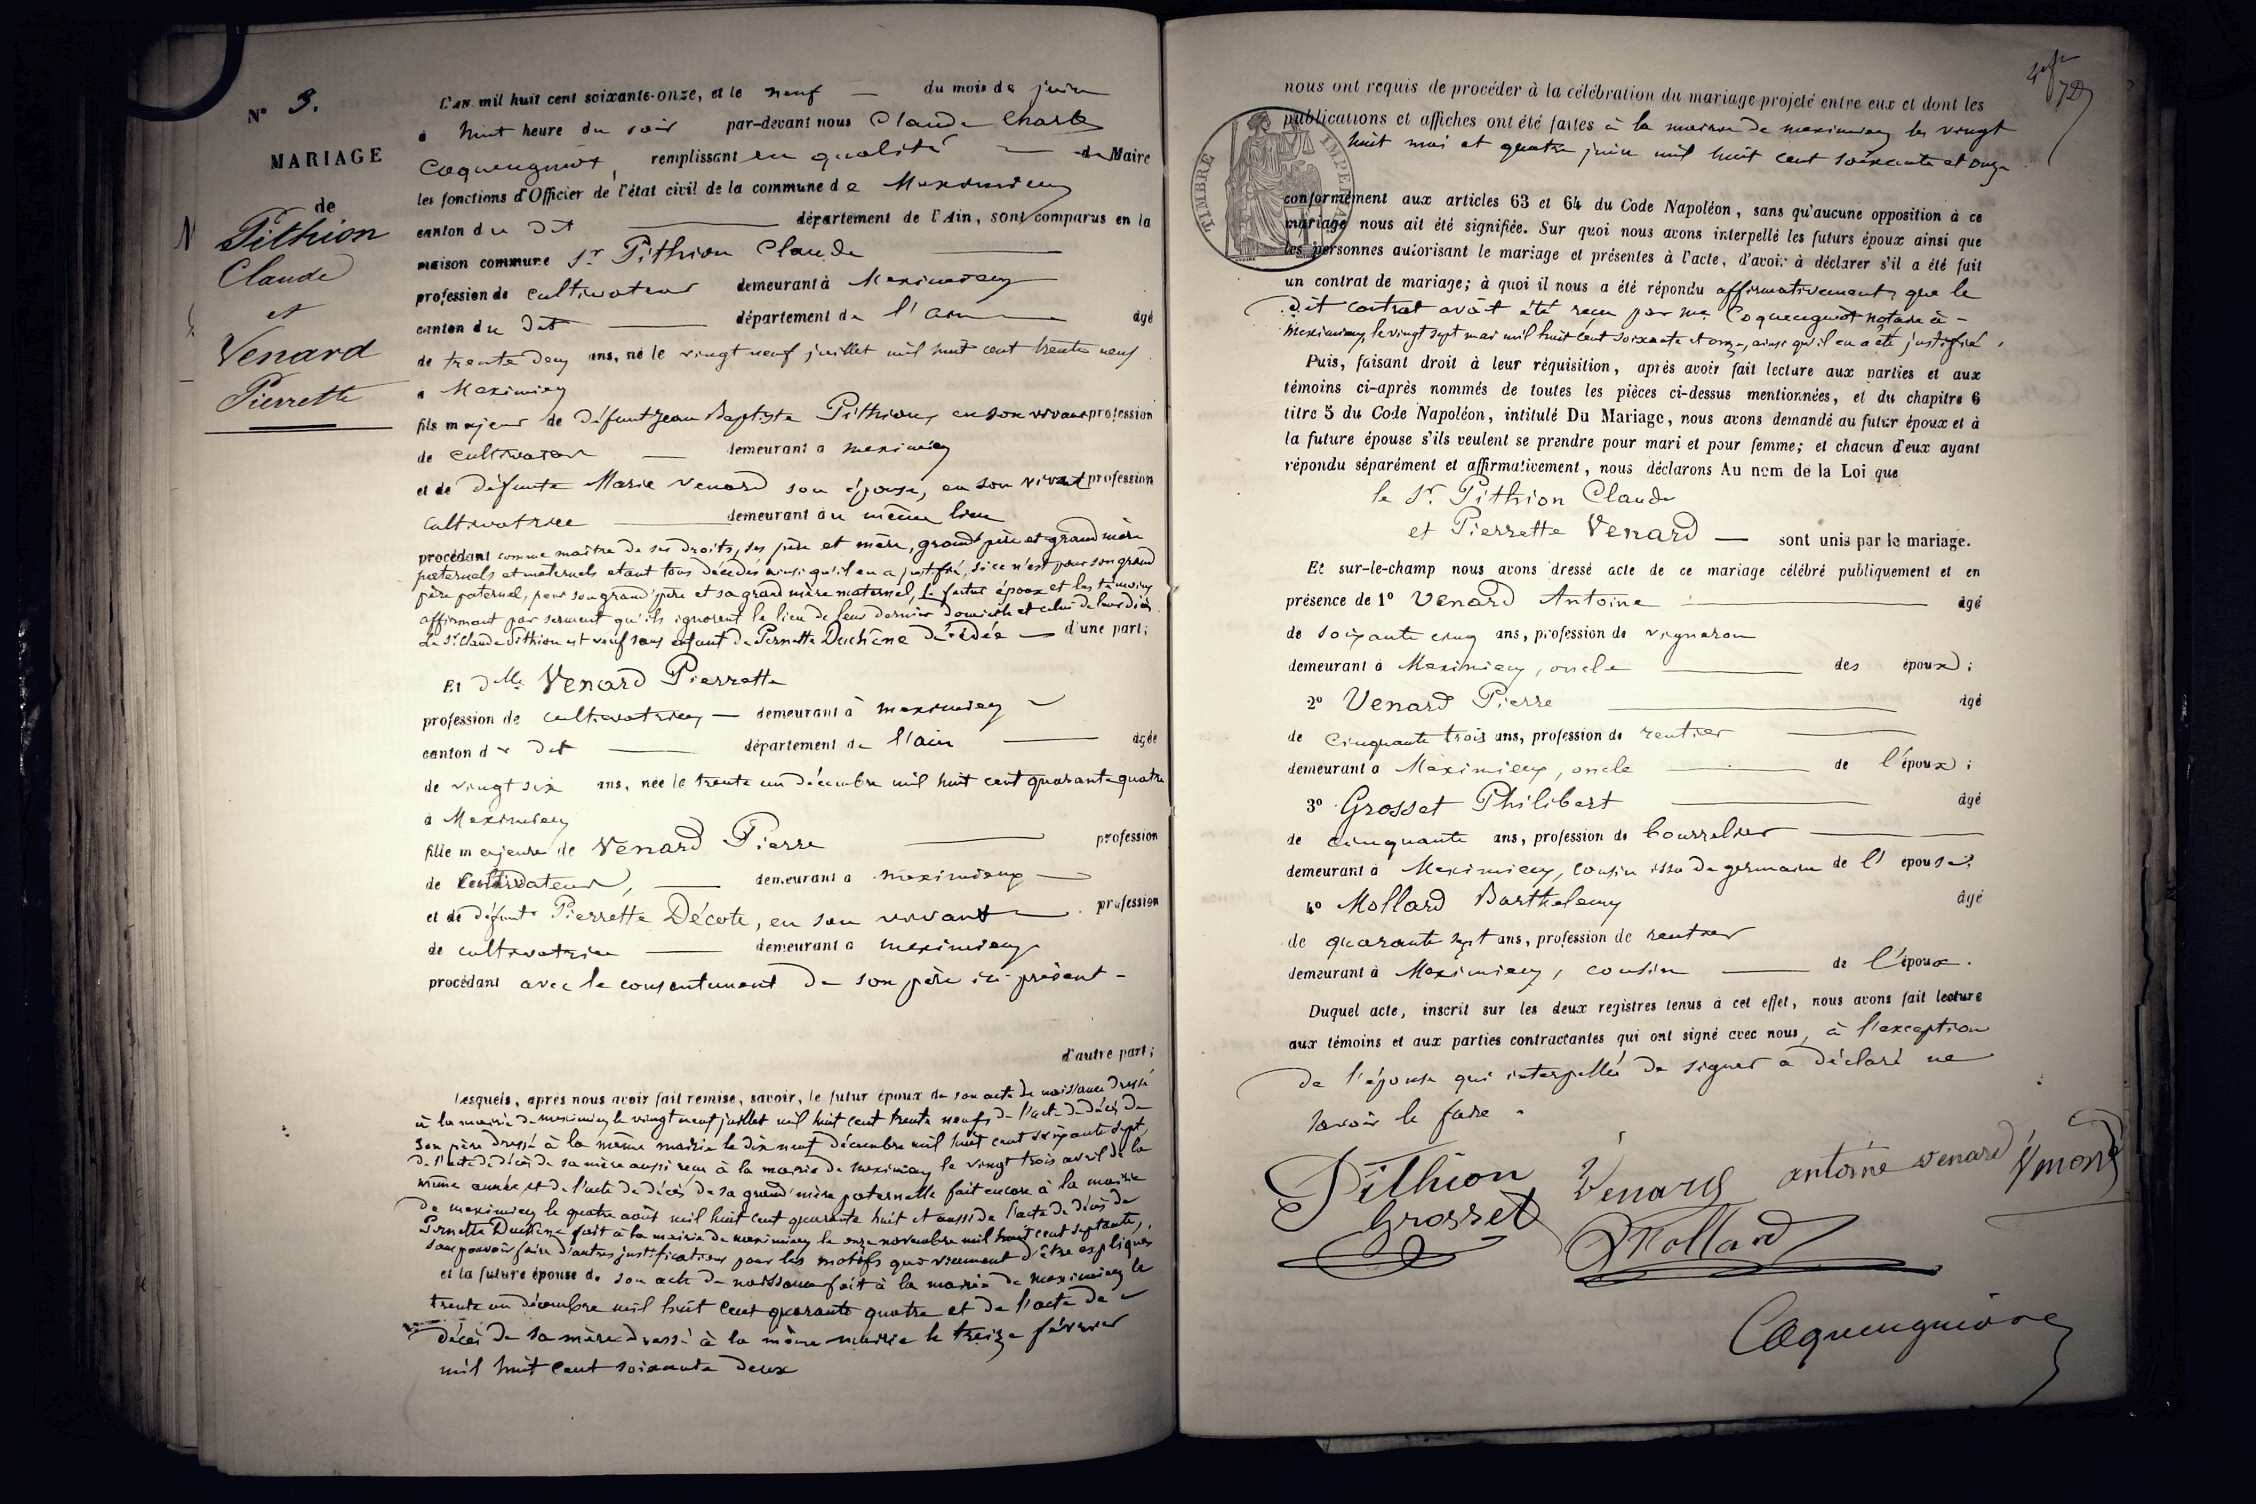 N° 3.
MARIAGE
de
Pithion
Claude
et
Venard
Pierrette
L'an mil huit cent soixante-onze, et le neuf du mois de juin
à huit heure du soir par-devant nous Claude Charles
Coquengniot, remplissant en qualité de Maire
les fonctions d'Officier de l'état civil de la commune de Meximieux
canton du dit département de l'Ain, sont comparus en la
maison commune Sr Pithion Claude
profession de cultivateur demeurant à Meximieux
canton du dit département de l'ain âgé
de trente deux ans, né le vingt neuf juillet mil huit cent trente neuf
à Meximieux
fils majeur de défunt Jean Baptiste Pithion, en son vivant profession
de cultivateur demeurant à meximieux
et de défunte Marie Venard son épouse, en son vivant profession
cultivatrice demeurant au même lieu
procédant comme maître de ses droits, ses père et mère, grand père et grand mère
paternels et maternels etant tous décedés ainsi qu'il en a justifié, si ce n'est pour son grand
père paternel, pour son grand père et sa grand mère maternel, le futur époux et les témoins
affirmant par serment qu'ils ignorent le lieu de leur dernier domicile et celui de leur décès.
Le Sr Claude Pithion est veuf sans enfant de Pernette Duchêne décédée d'une part;
Et Dlle Venard Pierrette
profession de cultivatrice demeurant à meximieux
canton du dit département de l'ain âgée
de vingt six ans, née le trente un décembre mil huit cent quarante quatre
à Meximieux
fille majeure de Venard Pierre profession
de cultivateur, demeurant à meximieux
et de défunte Pierrette Décote, en son vivant profession
de cultivatrice demeurant à meximieux
procédant avec le consentement de son père ici présent
d'autre part;
Lesquels, après nous avoir fait remise, savoir, le futur époux de son acte de naissance dressé
à la mairie de meximieux le vingt neuf juillet mil huit cent trente neuf, de l'acte de décès de
son père dressé à la même mairie le dix neuf décembre mil huit cent soixante sept,
de l'acte de décès de sa mère aussi reçu à la mairie de meximieux le vingt trois avril de la
même année, et de l'acte de décès de sa grand'mère paternelle fait encore à la mairie
de meximieux le quatre août mil huit cent quarante huit et aussi de l'acte de décès de
Pernette Duchêne fait à la mairie de meximieux le onze novembre mil huit cent septante,
sans pouvoir faire d'autres justifications pour les motifs qui viennent d'être expliqués
et la future épouse de son acte de naissance fait à la mairie de meximieux le
trente un décembre mil huit cent quarante quatre et de l'acte de
décès de sa mère dressé à la même mairie le treize février
mil huit cent soixante deux
nous ont requis de procéder à la célébration du mariage projeté entre eux et dont les
publications et affiches ont été faites à la mairie de meximieux les vingt
huit mai et quatre juin mil huit cent soixante et onze
TIMBRE IMPERIAL
conformément aux articles 63 et 64 du Code Napoléon, sans qu'aucune opposition à ce
mariage nous ait été signifiée. Sur quoi nous avons interpellé les futurs époux ainsi que
les personnes autorisant le mariage et présentes à l'acte, d'avoir à déclarer s'il a été fait
un contrat de mariage; à quoi il nous a été répondu affirmativement, que le
dit contrat avait été reçu par me Coquengniot notaire à
meximieux, le vingt sept mai mil huit cent soixante et onze, ainsi qu'il en a été justifié.
Puis, faisant droit à leur réquisition, après avoir fait lecture aux parties et aux
témoins ci-après nommés de toutes les pièces ci-dessus mentionnées, et du chapitre 6
titre 5 du Code Napoléon, intitulé Du Mariage, nous avons demandé au futur époux et à
la future épouse s'ils veulent se prendre pour mari et pour femme; et chacun d'eux ayant
répondu séparément et affirmativement, nous déclarons Au nom de la Loi que
le Sr Pithion Claude
et Pierrette Venard sont unis par le mariage.
Et sur-le-champ nous avons dressé acte de ce mariage célébré publiquement et en
présence de 1° Venard Antoine âgé
de soixante cinq ans, profession de vigneron
demeurant à Meximieux, oncle des époux;
2° Venard Pierre âgé
de cinquante trois ans, profession de rentier
demeurant à Meximieux, oncle de l'époux;
3° Grosset Philibert âgé
de cinquante ans, profession de bourrelier
demeurant à Meximieux, cousin issu de germain de l'épouse;
4° Mollard Barthelemy âgé
de quarante sept ans, profession de rentier
demeurant à Meximieux, cousin de l'époux.
Duquel acte, inscrit sur les deux registres tenus à cet effet, nous avons fait lecture
aux témoins et aux parties contractantes qui ont signé avec nous, à l'exception
de l'épouse qui interpellée de signer a déclaré ne
savoir le faire.
Pithion Venard antoine venard Venard
Grosset Mollard
Coquengniot